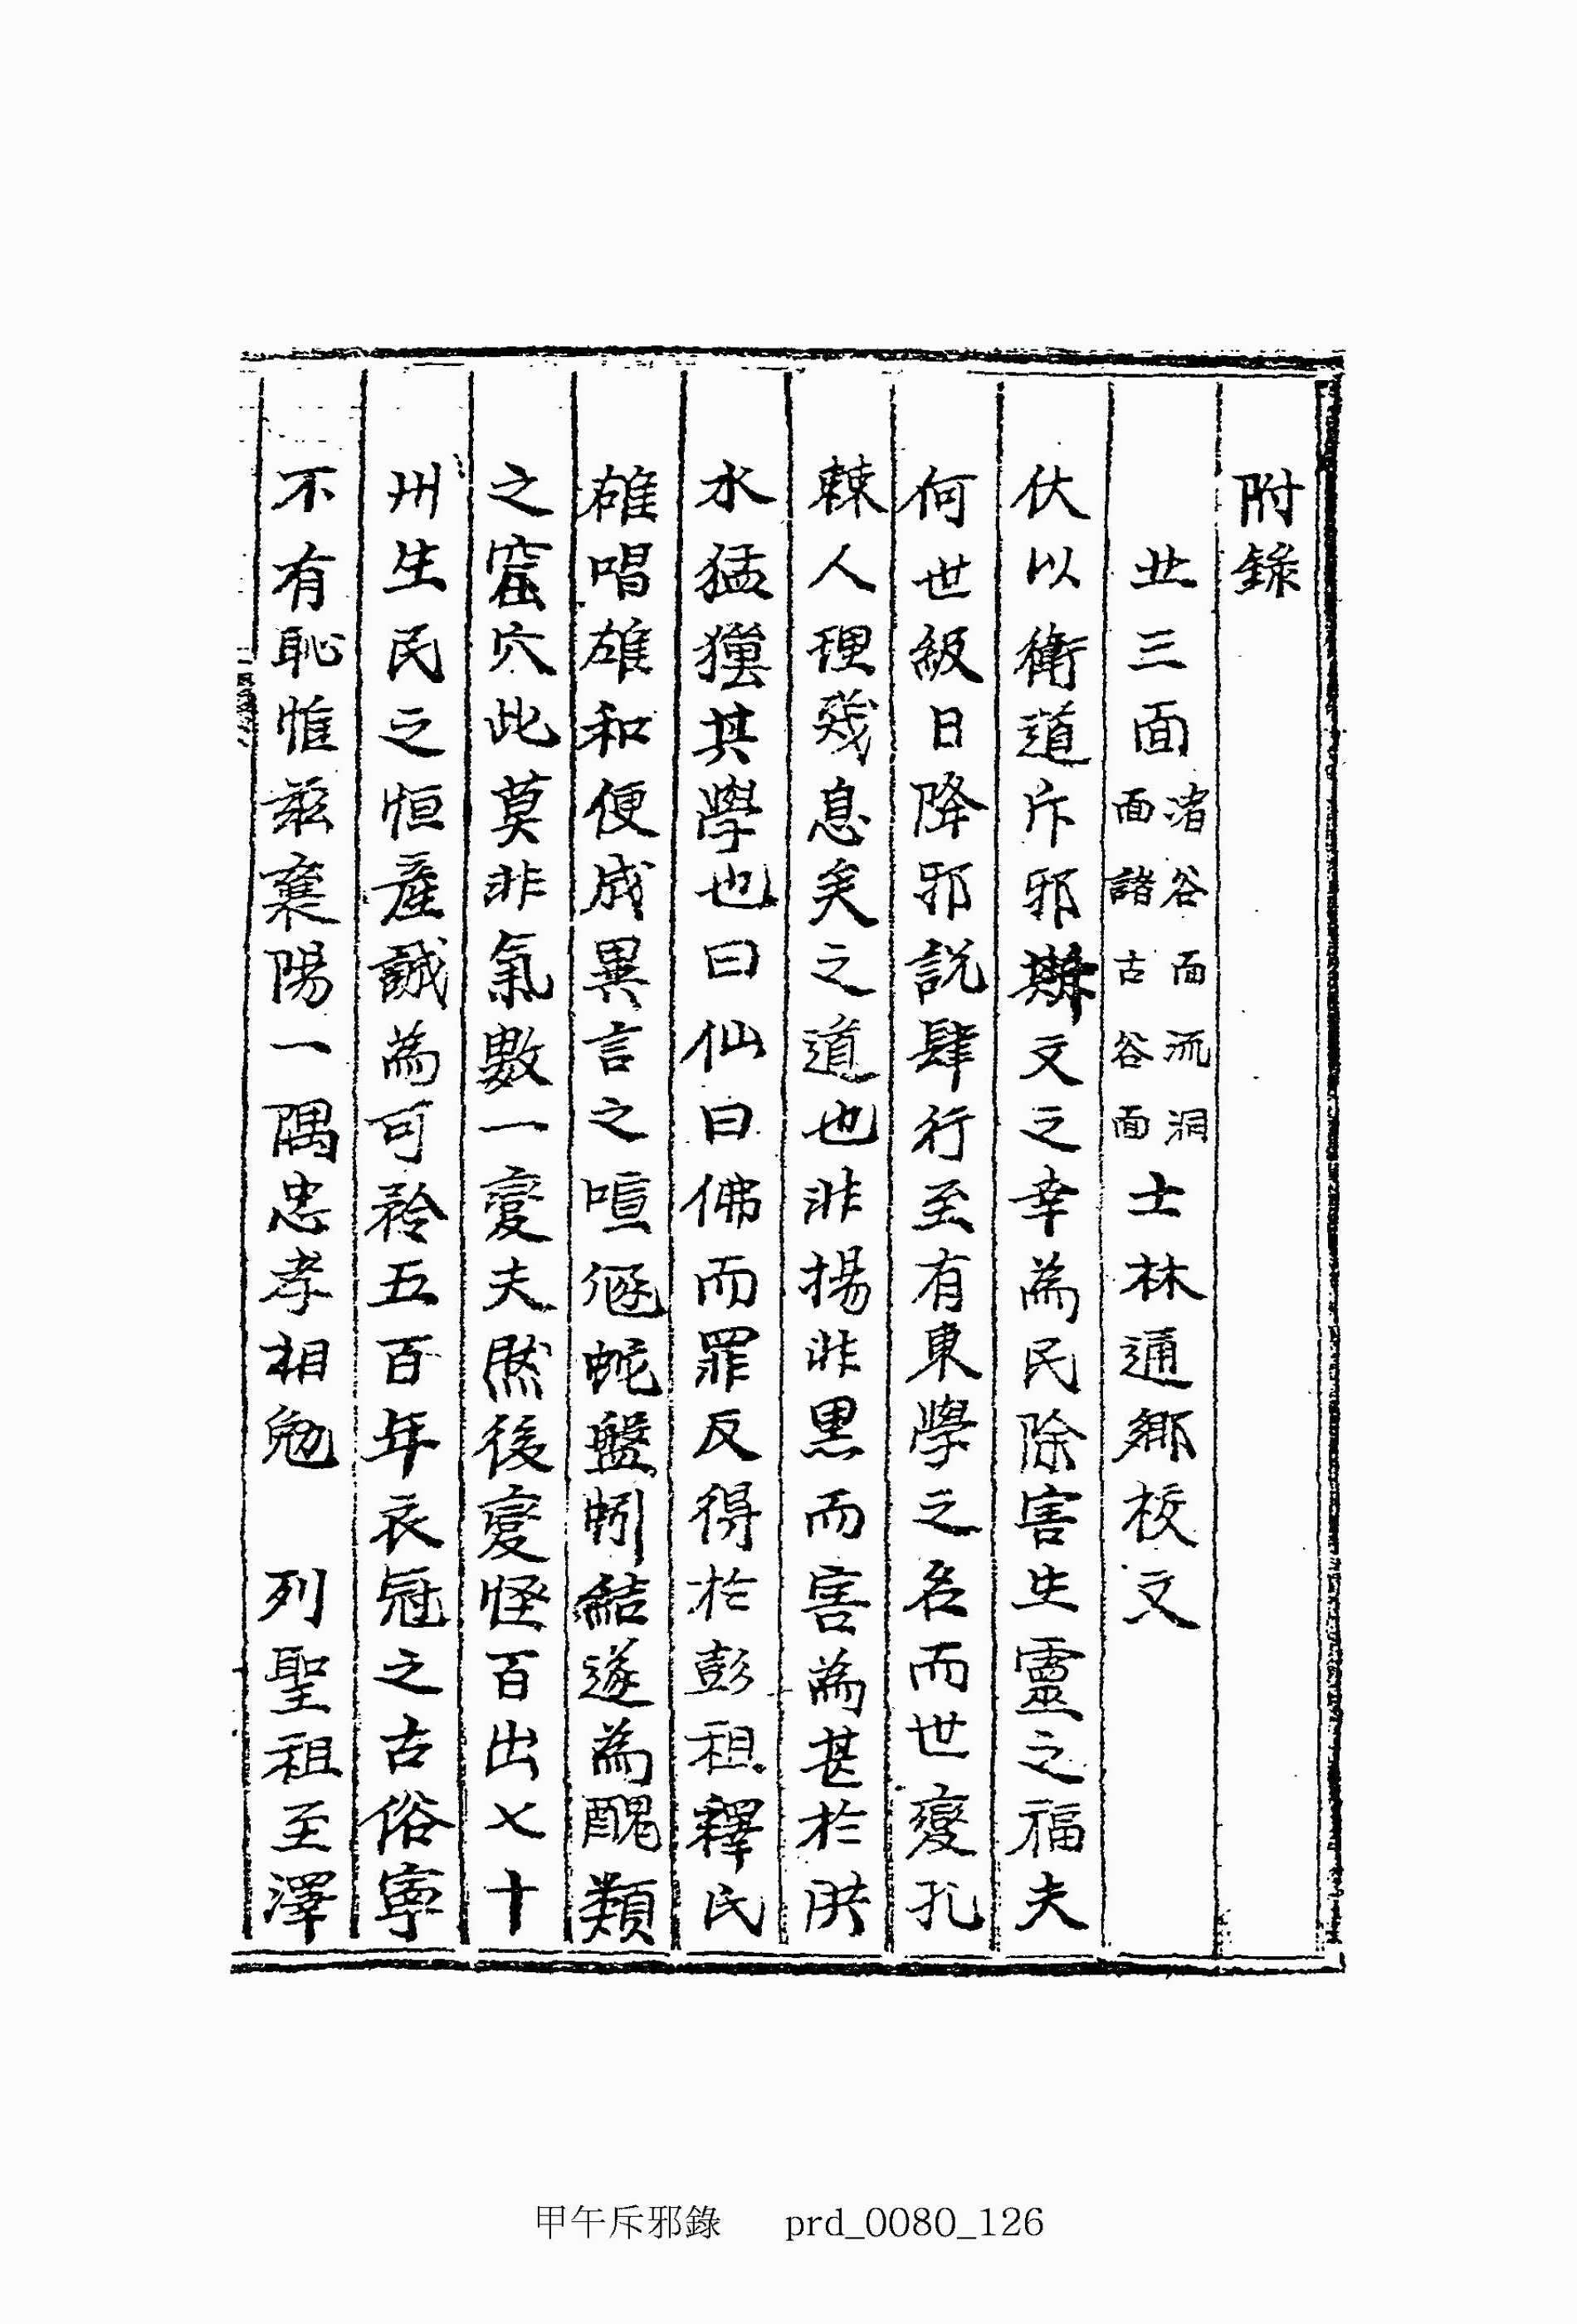 附錄
北三面渚谷面流洞面諸古谷面士林通鄉校文
伏以衛道斥邪斯文之幸為民除害生靈之福夫
何世級日降邪說肆行至有東學之名而世變孔
棘人理殘息矣之道也非揚非墨而害為甚於洪
水猛獸其學也曰仙曰佛而罪反得於彭祖釋氏
雄唱雄和便成異言之喧豗蛇盤蚓結遂為醜類
之窟穴此莫非氣數一變夫然後變怪百出七十
州生民之恒產誠為可矜五百年衣冠之古俗寧
不有恥惟玆襄陽一隅忠孝相勉　列聖祖至澤
甲午斥邪錄 prd_0080_126